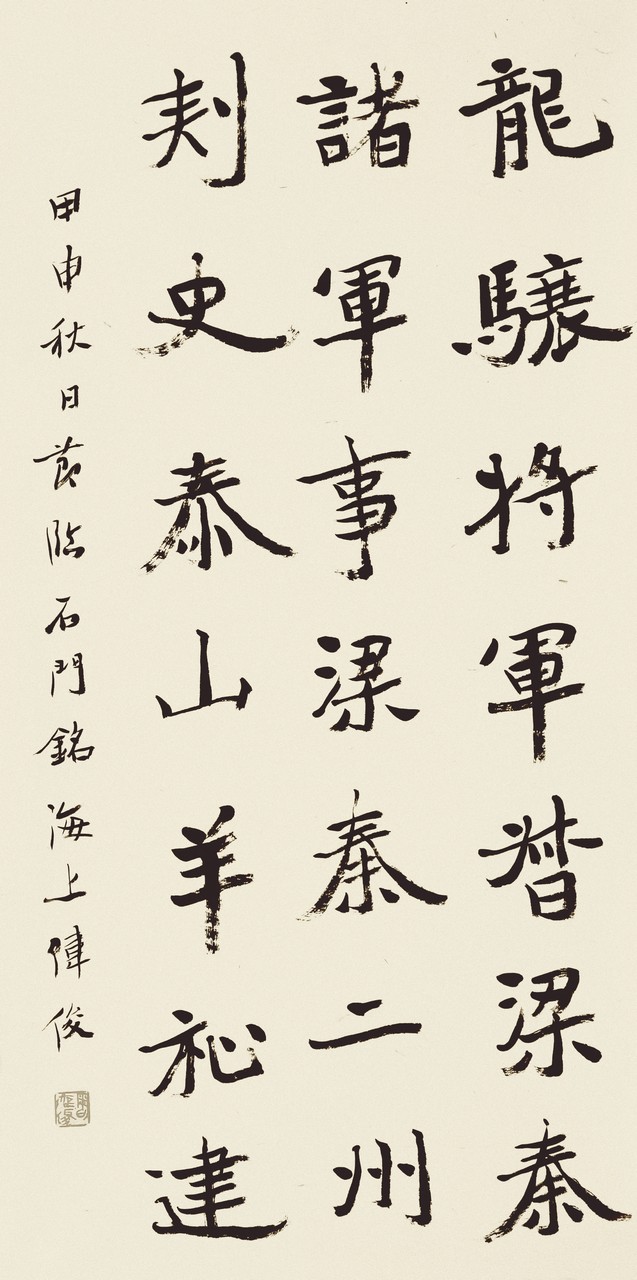 龍驤将軍督梁秦
諸軍事梁秦二州
刾史泰山羊祉建
甲申秋日節臨石門銘海上偉俊